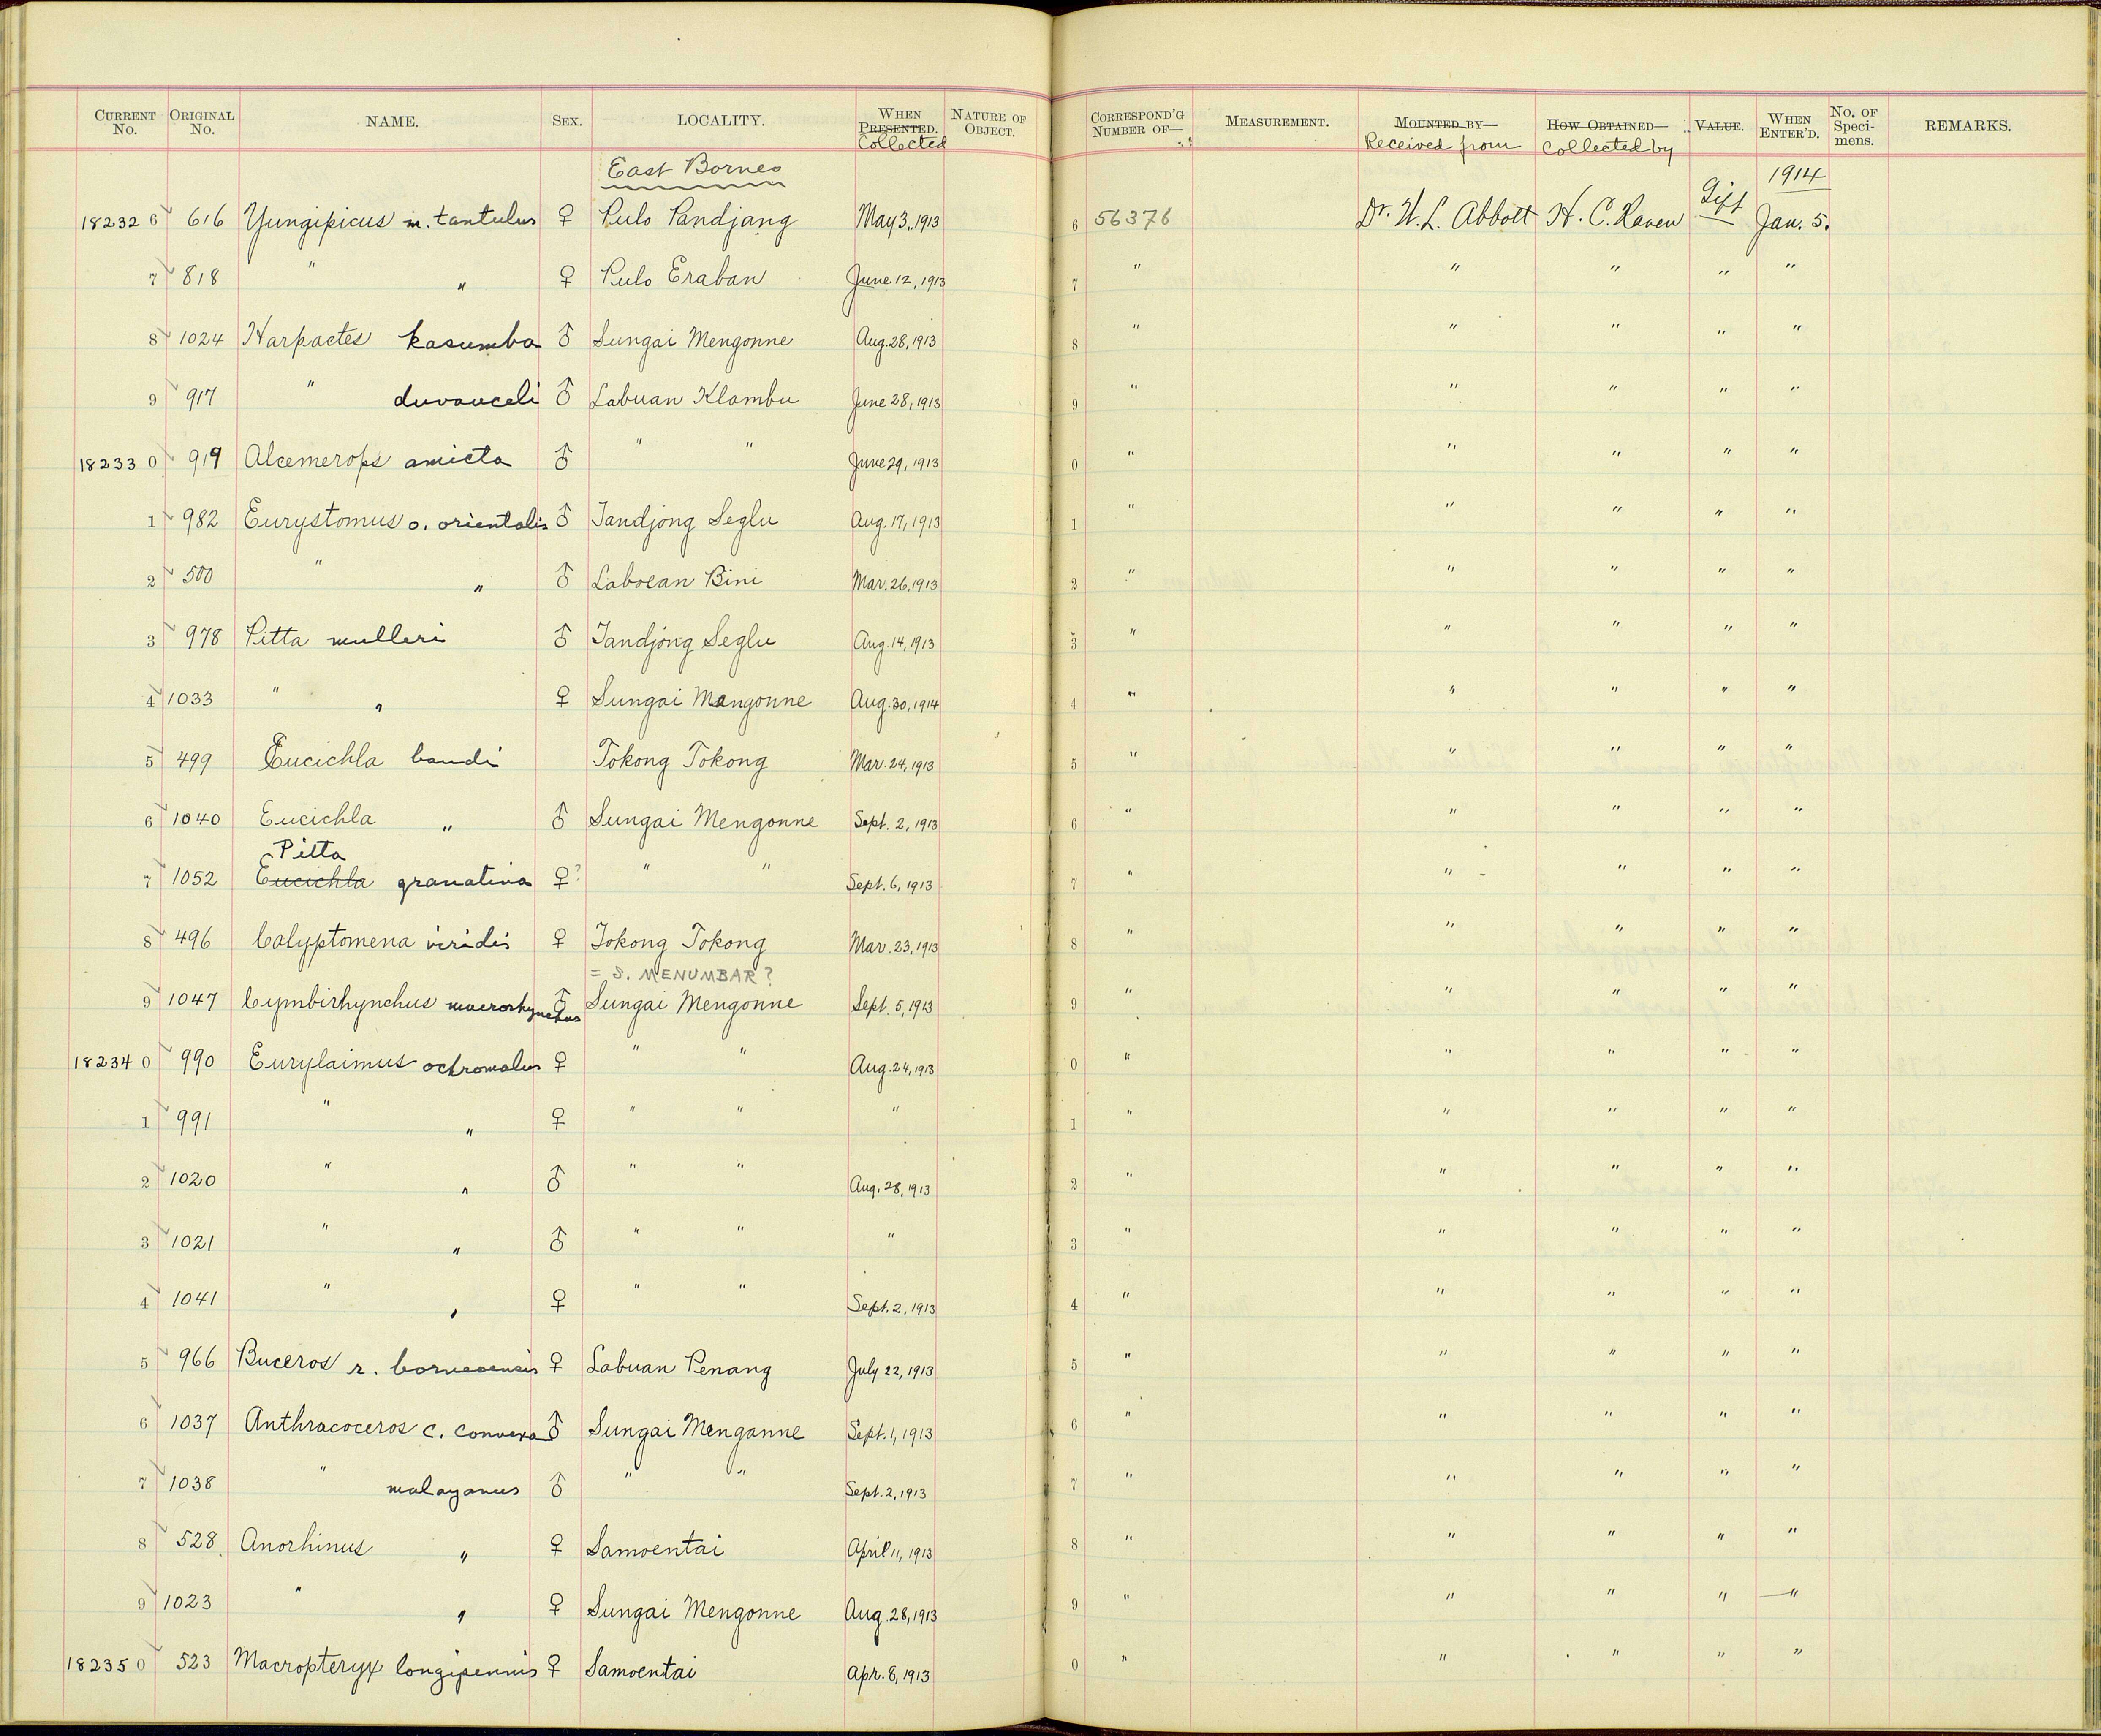 CURRENT No. ORIGINAL No. NAME. SEX. LOCALITY. WHEN PRESENTED. Collected NATURE OF OBJECT. CORRESPOND'G NUMBER OF— MEASUREMENT. MOUNTED BY— Received from HOW OBTAINED— Collected by VALUE. WHEN ENTER'D. No. OF Speci-mens. REMARKS.
East Borneo 1914
182326 616 Yungipicus m. tantulus ♀ Pulo Pandjang May 3, 1913 6 56376 Dr. W. L. Abbott H. C. Raven Gift Jan. 5.
7 818 " " ♀ Pulo Eraban June 12, 1913 7 " " " " "
8 1024 Harpactes kasumba ♂ Sungai Mengonne Aug. 28, 1913 8 " " " " "
9 917 " duvauceli ♂ Labuan Klambu June 28, 1913 9 " " " " "
182330 919 Alcemerops amicta ♂ " " June 29, 1913 0 " " " " "
1 982 Eurystomus o. orientalis ♂ Tandjong Seglu Aug. 17, 1913 1 " " " " "
2 500 " " ♂ Laboean Bini Mar. 26, 1913 2 " " " " "
3 978 Pitta mulleri ♂ Tandjong Seglu Aug. 14, 1913 3 " " " " "
4 1033 " " ♀ Sungai Mengonne Aug. 30, 1914 4 " " " " "
5 499 Eucichla baudi Tokong Tokong Mar. 24, 1913 5 " " " " "
6 1040 Eucichla " ♂ Sungai Mengonne Sept. 2, 1913 6 " " " " "
Pitta
7 1052 Eucichla granatina ♀? " " Sept. 6, 1913 7 " " " " "
8 496 Calyptomena viridis ♀ Tokong Tokong Mar. 23, 1913 8 " " " " "
= S. MENUMBAR?
9 1047 Cymbirhynchus macrorhynchus ♂ Sungai Mengonne Sept. 5, 1913 9 " " " " "
182340 990 Eurylaimus ochromalus ♀ " " Aug. 24, 1913 0 " " " " "
1 991 " " ♀ " " " 1 " " " " "
2 1020 " " ♂ " " Aug. 28, 1913 2 " " " " "
3 1021 " " ♂ " " " 3 " " " " "
4 1041 " " ♀ " " Sept. 2, 1913 4 " " " " "
5 966 Buceros r. borneoensis ♀ Labuan Penang July 22, 1913 5 " " " " "
6 1037 Anthracoceros c. convexa ♂ Sungai Menganne Sept. 1, 1913 6 " " " " "
7 1038 " malayanus ♂ " " Sept. 2, 1913 7 " " " " "
8 528 Anorhinus " ♀ Samoentai April 11, 1913 8 " " " " "
9 1023 " " ♀ Sungai Mengonne Aug. 28, 1913 9 " " " " "
182350 523 Macropteryx longipennis ♀ Samoentai Apr. 8, 1913 0 " " " " "